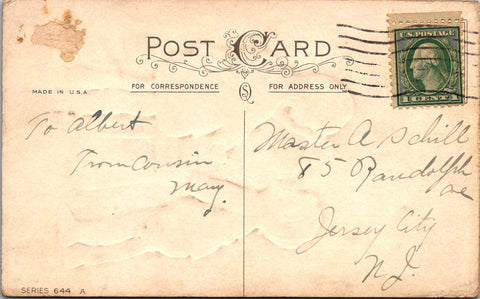 POST CARD
MADE IN U.S.A.
FOR CORRESPONDENCE
FOR ADDRESS ONLY
U.S. POSTAGE
1 CENT 1
To Albert
From Cousin
May.
Master A Schill
85 Randolph
ave
Jersey City
N.J.
SERIES 644 A